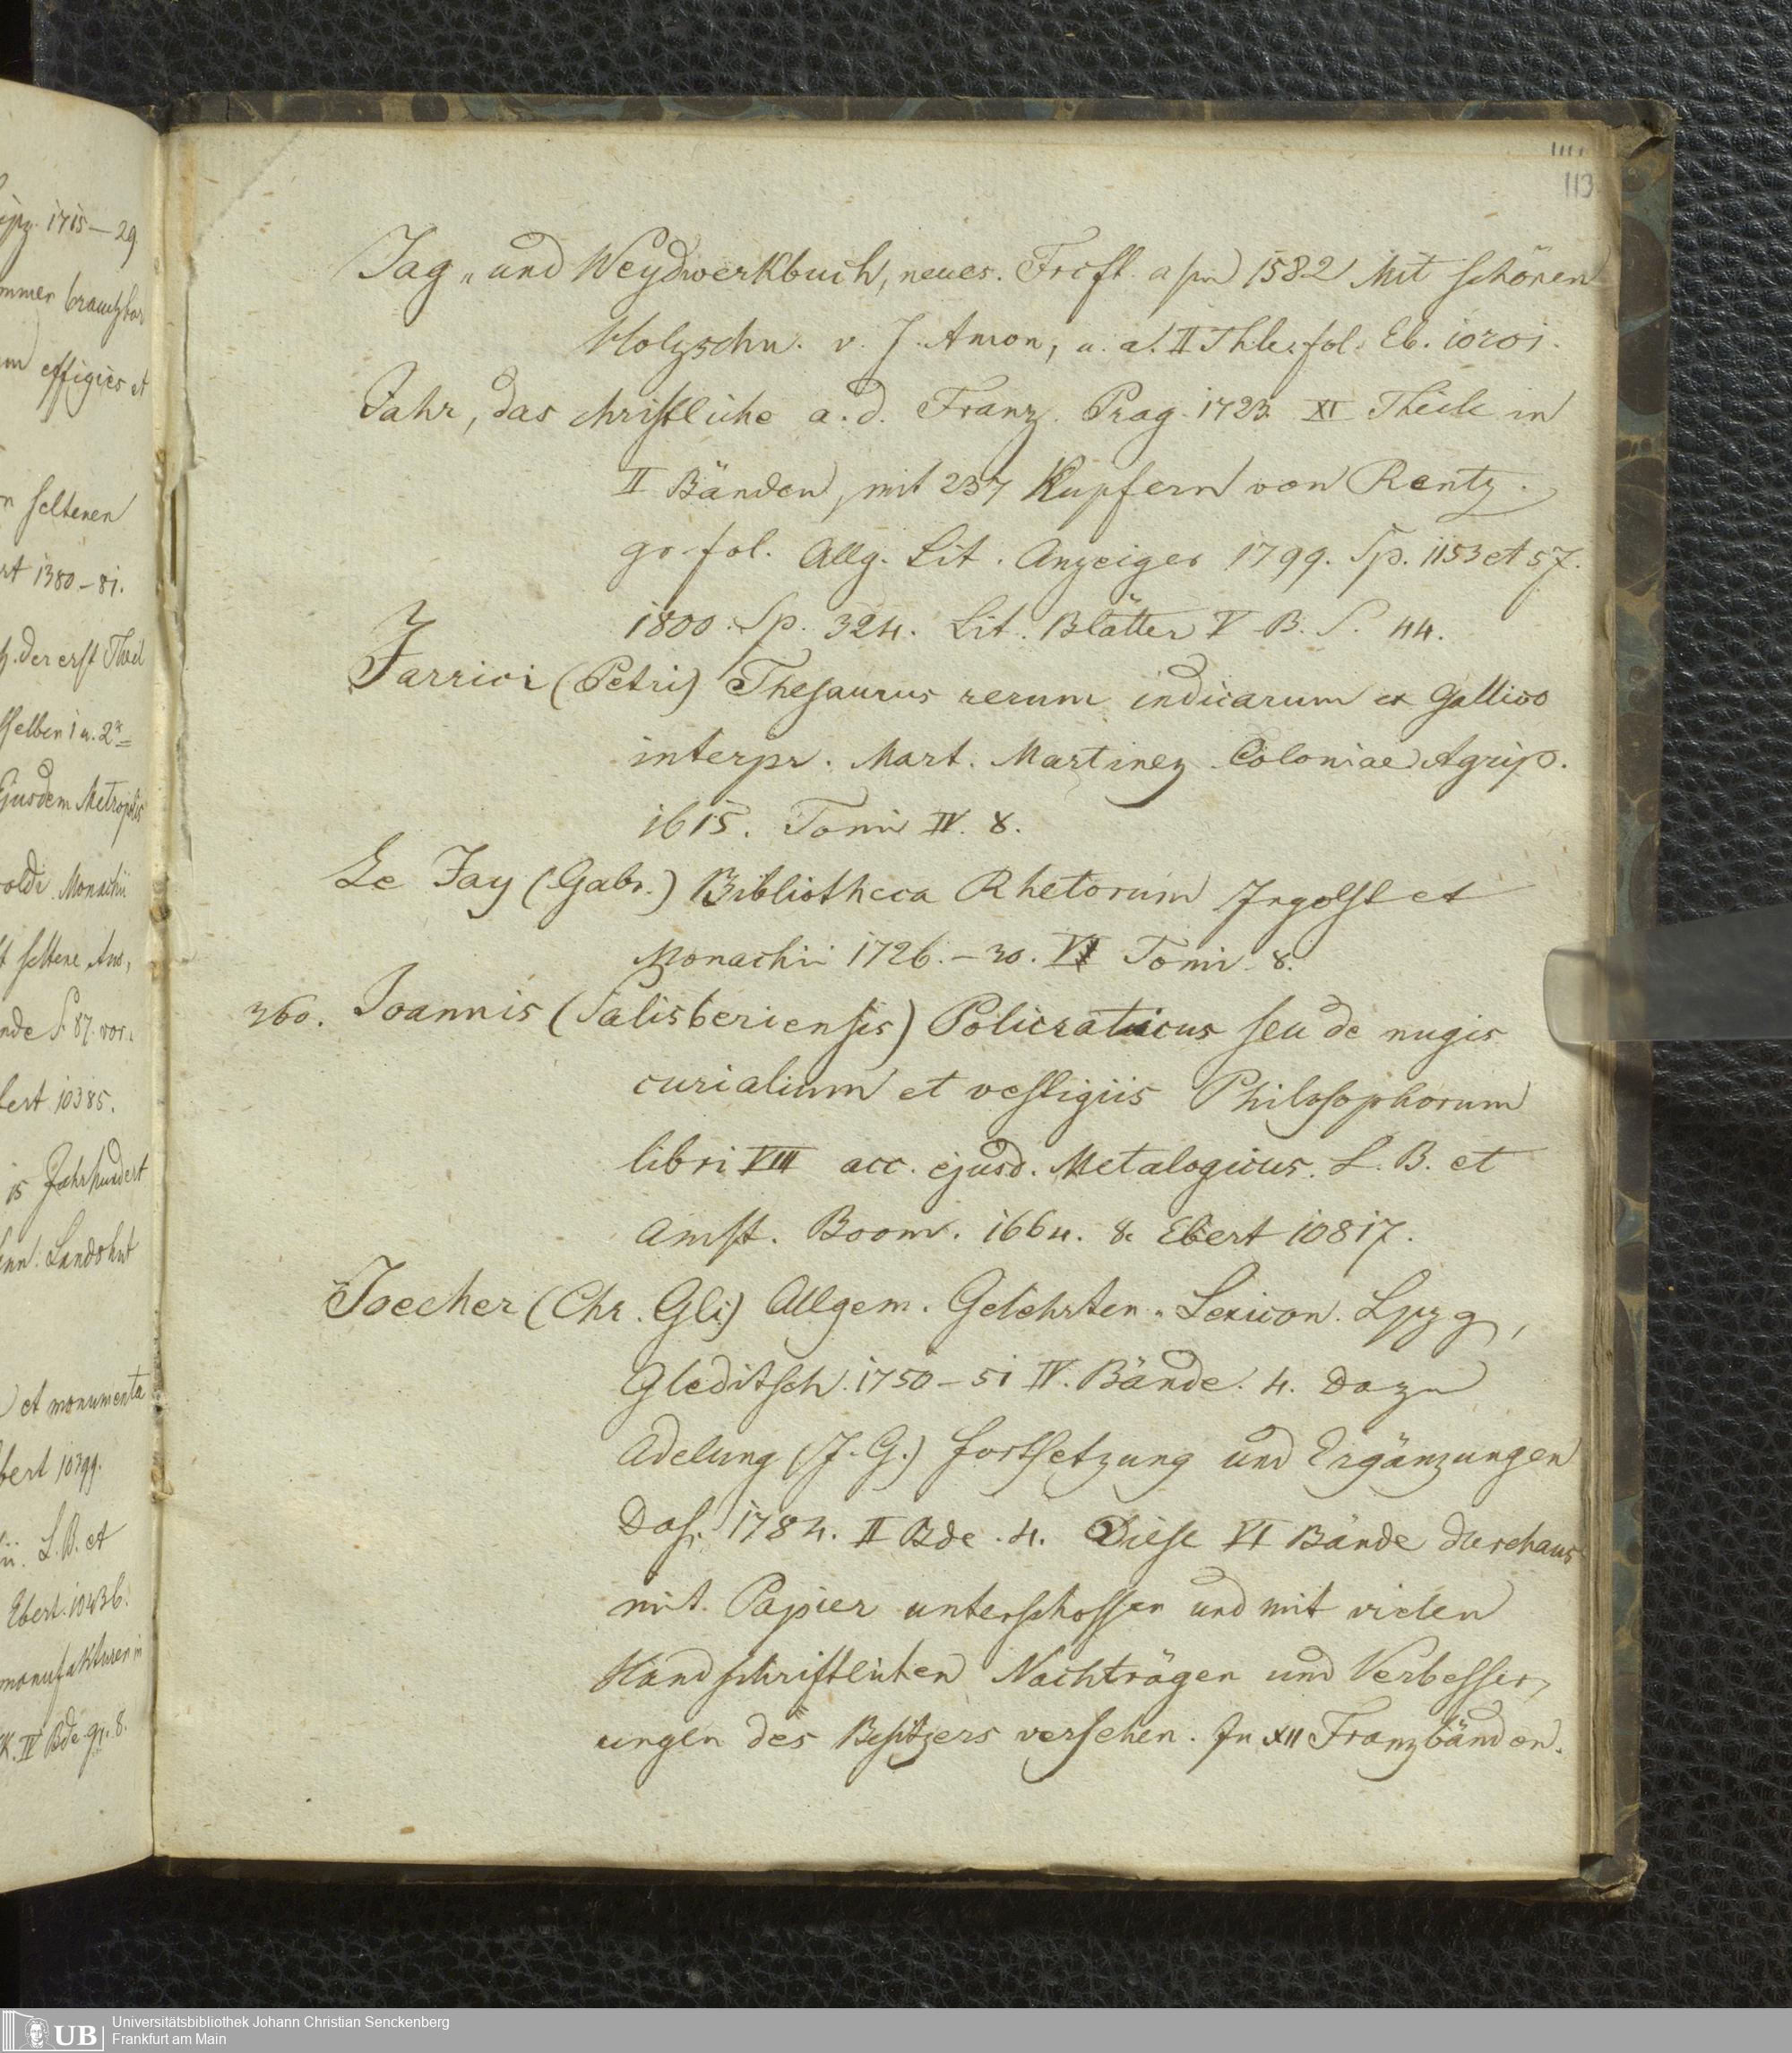 113
Jag- und Weydwerkbuch, neues. Frcft. a/m 1582 Mit schönen
Holzschn. v. J. Amon, u. a. II Thle. fol. Eb. 10701.
Jahr, das christliche a. d. Franz. Prag. 1723. XI Theile in
II Bänden, mit 237 Kupfern von Rentz.
gr. fol. Allg. Lit. Anzeiger 1799. Sp. 1153 et 57.
1800. Sp. 324. Lit. Blätter V B. S. 44.
Jarrici (Petri) Thesaurus rerum indicarum ex Gallico
interpr. Mart. Martinez Coloniae Agrip.
1615. Tomi IV. 8.
Le Jay (Gabr.) Bibliotheca Rhetorum Ingolst et
Monachii 1726.–30. VI Tomi 8.
360. Joannis (Salisberiensis) Policraticus seu de nugis
curialium et vestigiis Philosophorum
libri VIII acc. ejusd. Metalogicus. L. B. et
Amst. Boom. 1664. 8. Ebert 10817.
Joecher (Chr. Gli) Allgem. Gelehrten-Lexicon. Lpzg,
Gleditsch. 1750–51 IV. Bände. 4. Dazu
Adelung (J. G.) Fortsetzung und Ergänzungen
Das. 1784. II Bde. 4. Diese VI Bände durchaus
mit Papier unterschossen und mit vielen
Handschriftlichen Nachträgen und Verbesser,
ungen des Besitzers versehen. In XII Franzbänden.
ipz. 1715–29
mmer brauchbar
effigies et
seltenen
rt 1380–81.
z. der erst Theil
sselben 1 u. 2
Ejusdem Metropolis
oldi Monachii
seltene Aus,
nde S. 87. vor.
bert 10385.
15 Jahrhundert
Landshut
et monumenta
bert 10399.
ii. L. B. et
Ebert. 10436.
manufakturen in
K. IV Bde gr. 8.
UB
Universitätsbibliothek Johann Christian Senckenberg
Frankfurt am Main